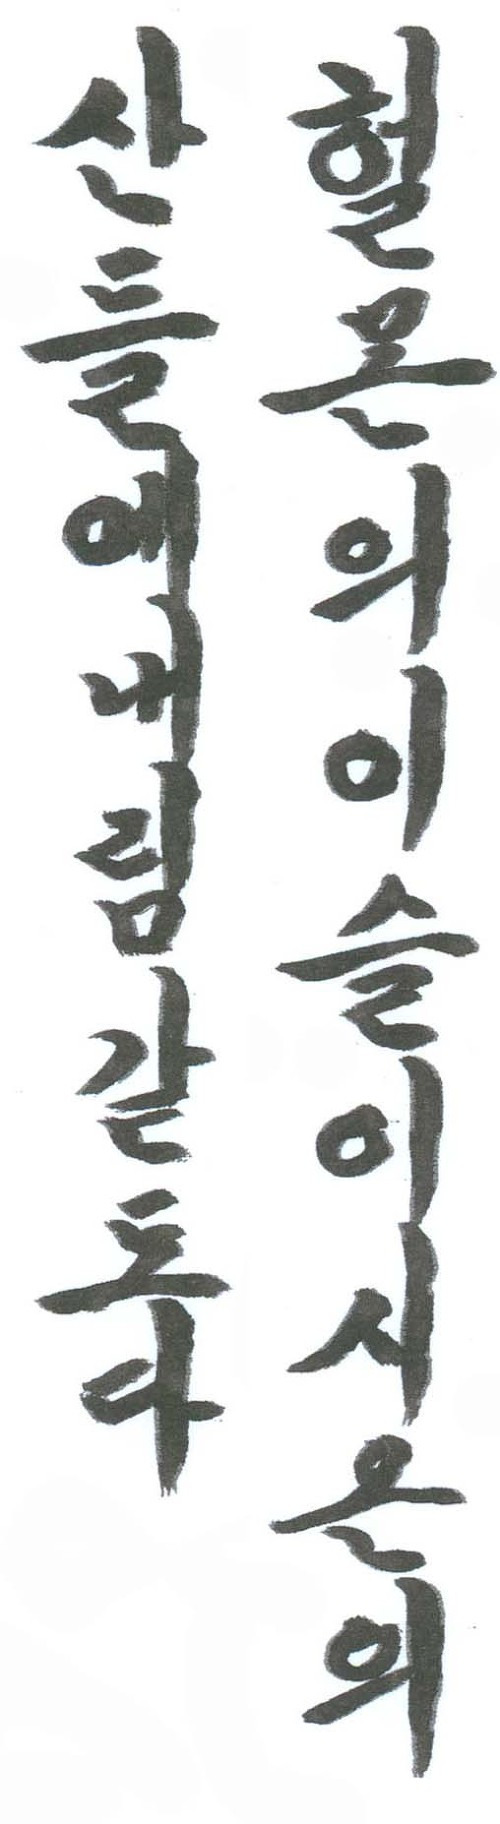 헐몬의이슬이시온의
산들에내림같도다